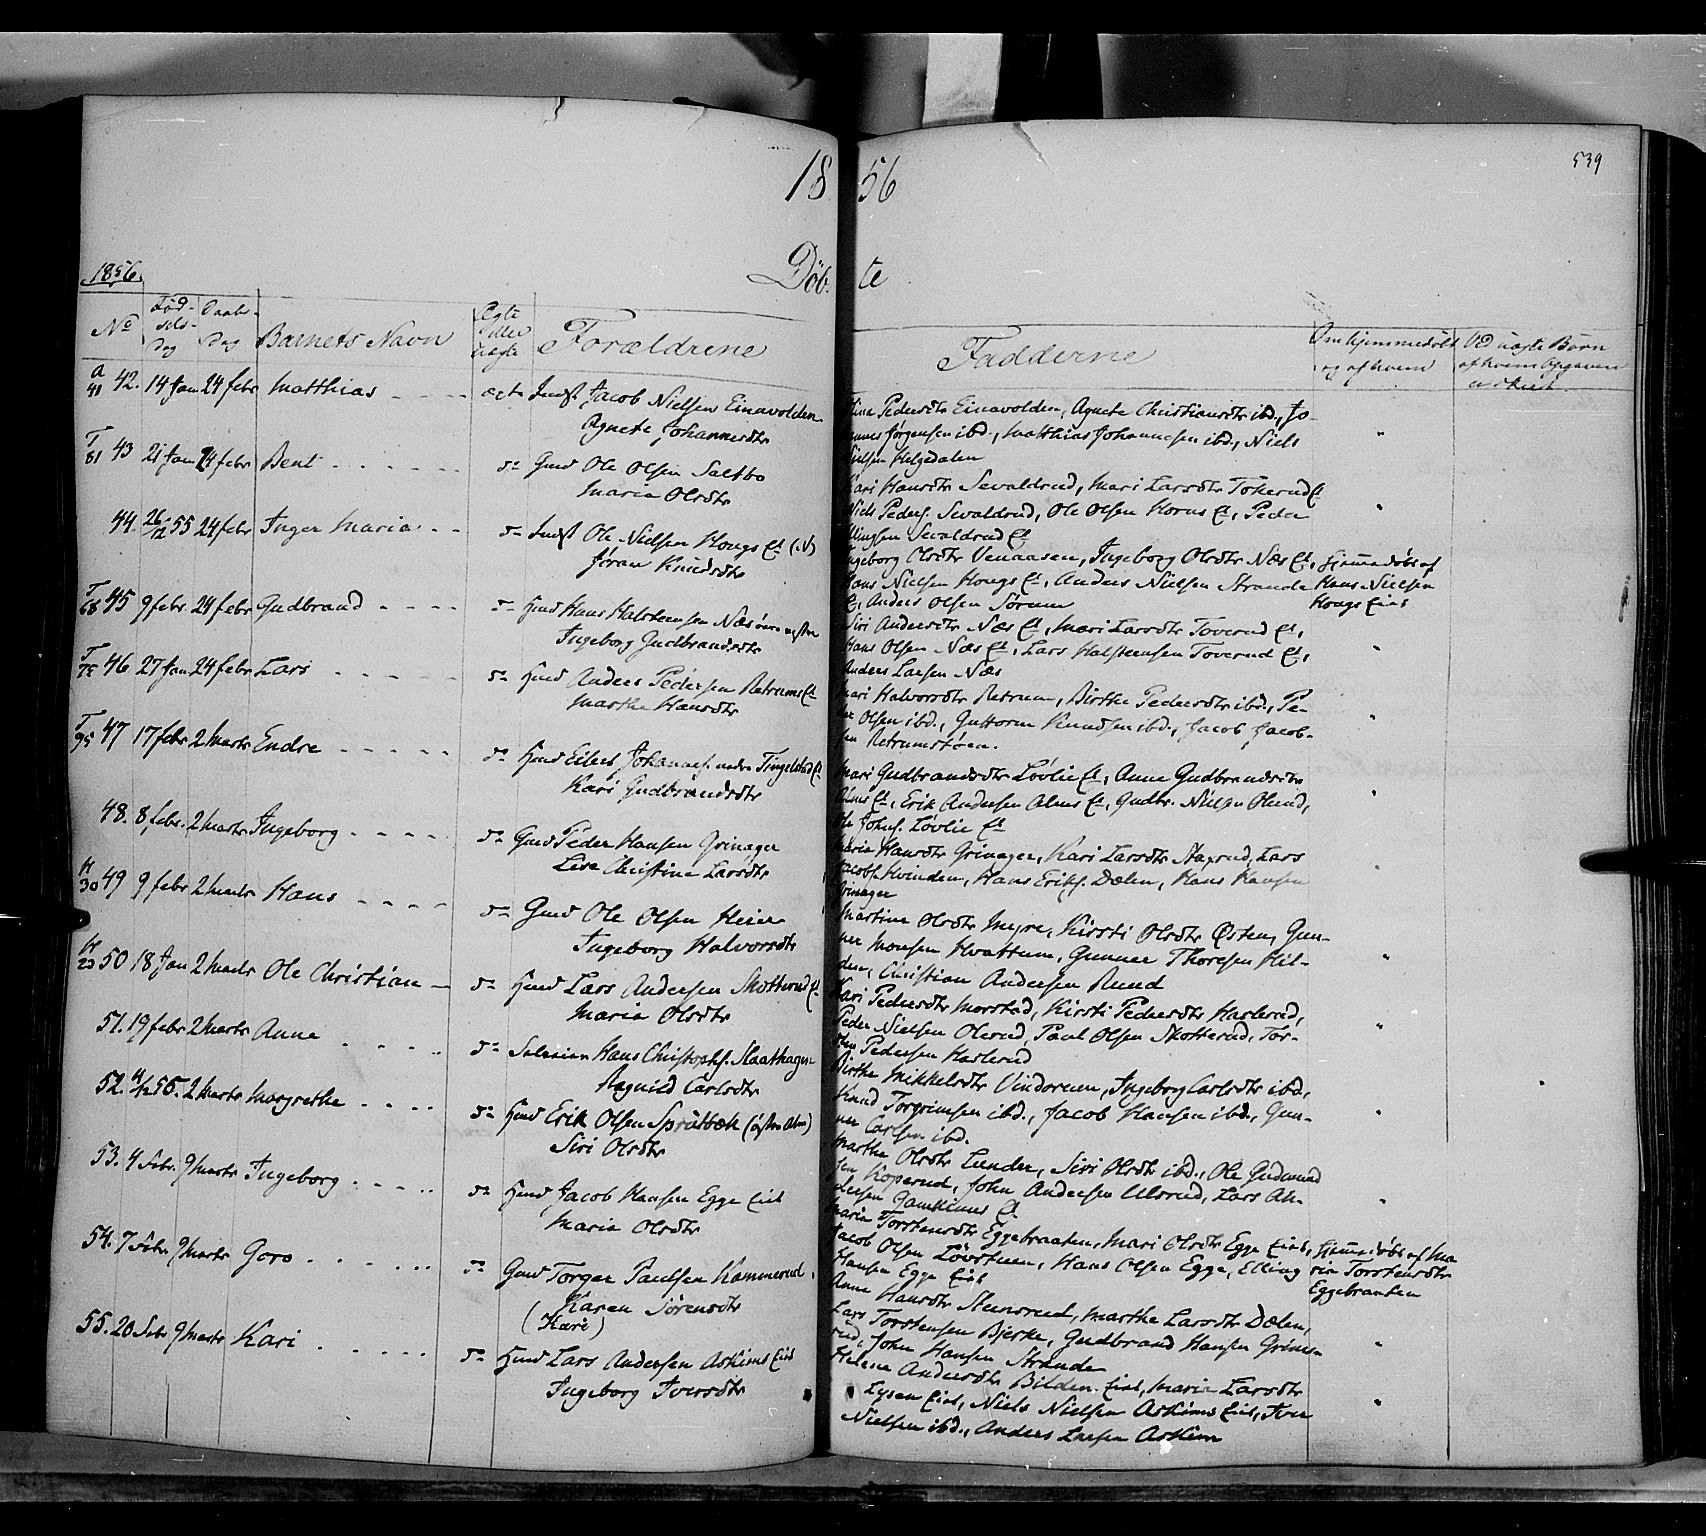 18 56
539
1856.
Döb- te
No
Fød-
sels-
Dag
Daabs-
Dag
Barnets Navn
Ægte
eller
uægte
Forældrene
Fadderne
Om hjemmedöbt
og af hvem
Ved uægte Børn
af hvem Opgaven
er skeet
A 41 42. 14 Jan 24 febr Matthias ægte Indst Jacob Nielsen Einavolden
Agnete Johannesdtr
Pedersdtr Einavolden, Agnete Christiansdtr ibd., Jo-
Jørgensen ibd., Matthias Johannesen ibd., Niels
Nielsen Helgedalen
T 81 43 21 Jan 24 febr Bent do Gmd Ole Olsen Saltbo
Maria Olsdtr
Kari Hansdtr Sevaldrud, Mari Larsdtr Tokerud Et
Niels Peders. Sevaldrud, Ole Olsen Horns Et, Peder
Sevaldrud Et
44. 26/12 55 24 febr Inger Maria do Indst Ole Nielsen Hougs Et (N)
Jøran Knudsdtr
Ingeborg Olsdtr Venaasen, Ingeborg Olsdtr Næs Et,
Hans Nielsen Hougs Et, Anders Nielsen Strande
Et, Anders Olsen Sørum
Hjemmedøbt af
Hans Nielsen
Hougs Eiet
T 68 45 9 febr. 24 febr Gudbrand do Hmd Hans Halsteensen Næs
Ingeborg Gudbrandsdtr
Siri Andersdtr Næs Et, Mari Larsdtr Toverud Et,
Hans Olsen Næs Et, Lars Halsteensen Toverud Et,
Anders Larsen Næs
T 75 46 27 Jan 24 febr Lars do Hmd Anders Pedersen Retrums Et
Marthe Hansdtr
Mari Halvorsdtr Retrum, Birthe Pedersdtr ibd., Pe-
Olsen ibd., Guttorm Knudsen ibd., Jacob Jacob-
sen Retrumstøen.
T 95 47 17 febr 2 Marts Endre do Hmd Eilert Johannes. nedre Tingelstad Et
Kari Gudbrandsdtr
Mari Gudbrandsdtr Løvlie Et, Anne Gudbrandsdtr
Alms Et, Erik Andersen Alms Et, Gudbr. Nielsen
Ole Johns. Løvlie Et
48. 8 febr. 2 Marts Ingeborg do Gmd Peder Hansen Grinager
Lise Christine Larsdtr
Maria Hansdtr Grinager, Kari Larsdtr Staxrud, Lars
Jacobs. Hvinden, Hans Eriks. Dælen, Hans Hansen
Grinager
H 30 49 9 febr 2 Marts Hans do Gmd Ole Olsen Heier
Ingeborg Halvorsdtr
Martine Olsdtr Myre, Kirsti Olsdtr Østen, Gun-
ner Monsen Hvattum, Gunner Thoresen Hil-
den, Christian Andersen Rund
H 23 50 18 Jan 2 Marts Ole Christian do Hmd Lars Andersen Skotterud Et
Maria Olsdtr
Kari Pedersdtr Morstad, Kirsti Pedersdtr Haslerud,
Peder Nielsen Olerud, Paul Olsen Skotterud, Tor-
sten Pedersen Haslerud
51. 19 febr 2 Marts Anne do Hans Christophs. Slaathagen
Ragnild Carlsdtr
Birthe Mikkelsdtr Vindorum, Ingeborg Carlsdtr ibd.,
Knud Torgrimsen ibd., Jacob Hansen ibd., Gun-
ner Carlsen ibd.
52. 55. 2 Marts Margrethe do Hmd Erik Olsen Sprütbæk (østre Alm)
Siri Olsdtr
Marthe Olsdtr Lunder, Siri Olsdtr ibd., Ole Gudmund
sen Koperud, John Andersen Ulsrud, Lars An-
dersen Gamkinns Et
53. 4 Febr. 9 Marts Ingeborg do Hmd Jacob Hansen Egge Eiet
Maria Olsdtr
Maria Torstensdtr Eggebraaten, Mari Olsdtr Egge Eiet,
Jacob Olsen Løvstuen, Hans Olsen Egge, Elling
Hansen Egge Eiet
Hjemmedøbt af Ma
ria Torstensdtr
Eggebraaten
54. 7 Febr. 9 Marts Goro do Gmd Torger Paulsen Kammerud
Karen Sørensdtr
(Kari)
Anne Hansdtr Steensrud, Marthe Larsdtr Dælen,
Lars Torstensen Bjerke, Gudbrand Hansen Grims-
rud, John Hansen Strande
55. 20 Febr 9 Marts Kari do Hmd Lars Andersen Askims Eiet
Ingeborg Iversdtr
Helene Andersdtr Bilden Eiet, Maria Larsdtr
Lysen Eiet, Niels Nielsen Askims Eiet, Iver
Nielsen ibd., Anders Larsen Askim